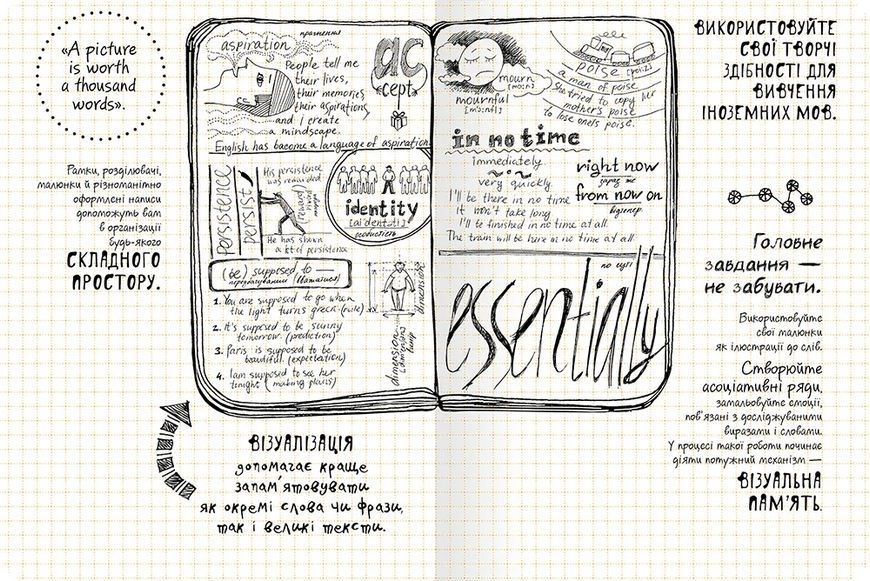 «A picture
is worth
a thousand
words».
Рамки, розділювачі,
малюнки й різноманітно
оформлені написи
допоможуть вам
в організації
будь-якого
СКЛАДНОГО
ПРОСТОРУ.
aspiration
прагнення
People tell me
their lives,
their memories,
their aspirations
and I create
a mindscape.
English has become a language of aspiration.
ac
cept
persistence
persist
His persistence
was rewarded
(reward)
He has shown
a lot of persistence
identity
[ai'dentəti]
особистість
(be) supposed to —
передбачуваний
1. You are supposed to go when
the light turns green. (rule)
2. It's supposed to be sunny
tomorrow. (prediction)
3. Paris is supposed to be
beautiful. (expectation)
4. I am supposed to see her
tonight (making plans)
dimension
dimensions
mourn
[mɔ:n]
mournful
[mɔ:nfl]
poise [pɔiz]
a man of poise
She tried to copy her
mother's poise.
to lose one's poise.
in no time
immediately
very quickly
I'll be there in no time
It won't take long
I'll be finished in no time at all.
The train will be here in no time at all
right now
зараз же
from now on
відтепер
по суті
essentially
ВІЗУАЛІЗАЦІЯ
допомагає краще
запам'ятовувати
як окремі слова чи фрази,
так і великі тексти.
ВИКОРИСТОВУЙТЕ
СВОЇ ТВОРЧІ
ЗДІБНОСТІ ДЛЯ
ВИВЧЕННЯ
ІНОЗЕМНИХ МОВ.
Головне
завдання —
не забувати.
Використовуйте
свої малюнки
як ілюстрації до слів.
Створюйте
асоціативні ряди,
замальовуйте емоції,
пов'язані з досліджуваними
виразами і словами.
У процесі такої роботи починає
діяти потужний механізм —
ВІЗУАЛЬНА
ПАМ'ЯТЬ.